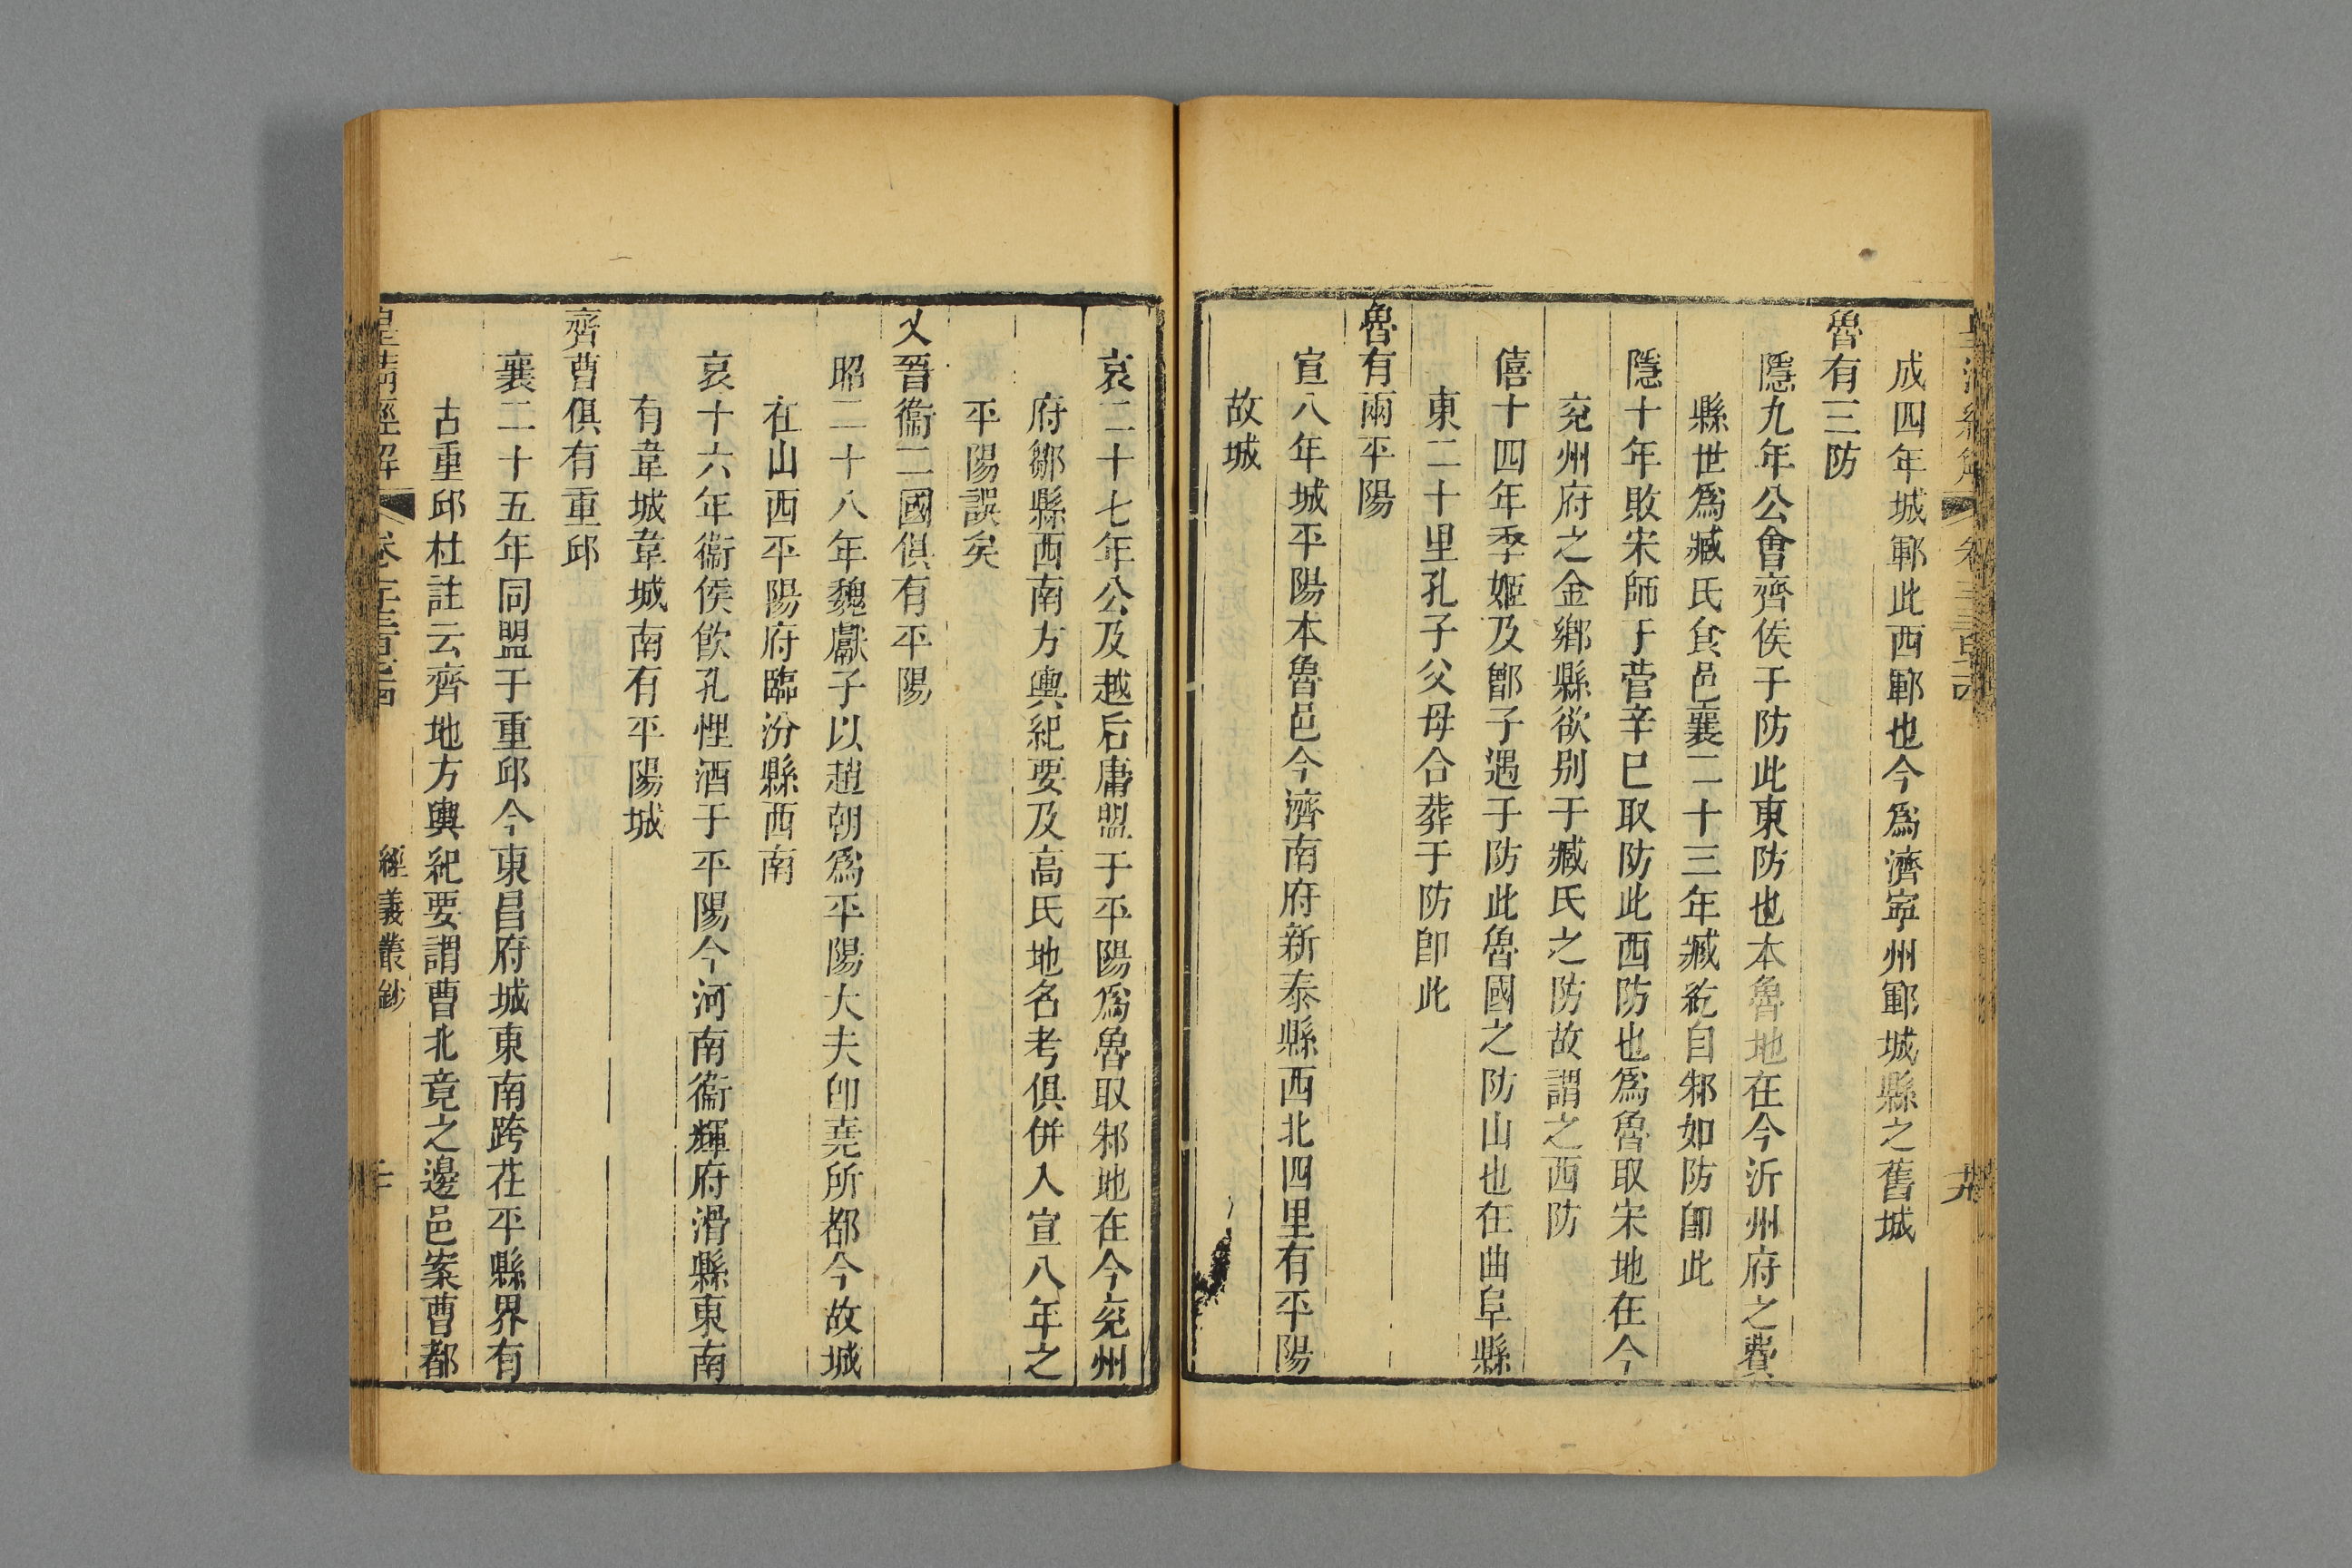 成四年城鄆此西鄆也今爲濟寧州鄆城縣之舊城
魯有三防
隱九年公會齊侯于防此東防也本魯地在今沂州府之費
縣世爲臧氏食邑襄二十三年臧紇自邾如防卽此
隱十年敗宋師于菅辛巳取防此西防也爲魯取宋地在今
兗州府之金鄉縣欲别于臧氏之防故謂之西防
僖十四年季姬及鄫子遇于防此魯國之防山也在曲阜縣
東二十里孔子父母合葬于防卽此
魯有兩平陽
宣八年城平陽本魯邑今濟南府新泰縣西北四里有平陽
故城
哀二十七年公及越后庸盟于平陽爲魯取邾地在今兗州
府鄒縣西南方輿紀要及高氏地名考俱併入宣八年之
平陽誤矣
又晉衞二國俱有平陽
昭二十八年魏獻子以趙朝爲平陽大夫卽堯所都今故城
在山西平陽府臨汾縣西南
哀十六年衞侯飮孔悝酒于平陽今河南衞輝府滑縣東南
有韋城韋城南有平陽城
齊曹俱有重邱
襄二十五年同盟于重邱今東昌府城東南跨茌平縣界有
古重邱杜註云齊地方輿紀要謂曹北竟之邊邑案曹都
皇淸經解
經義叢鈔